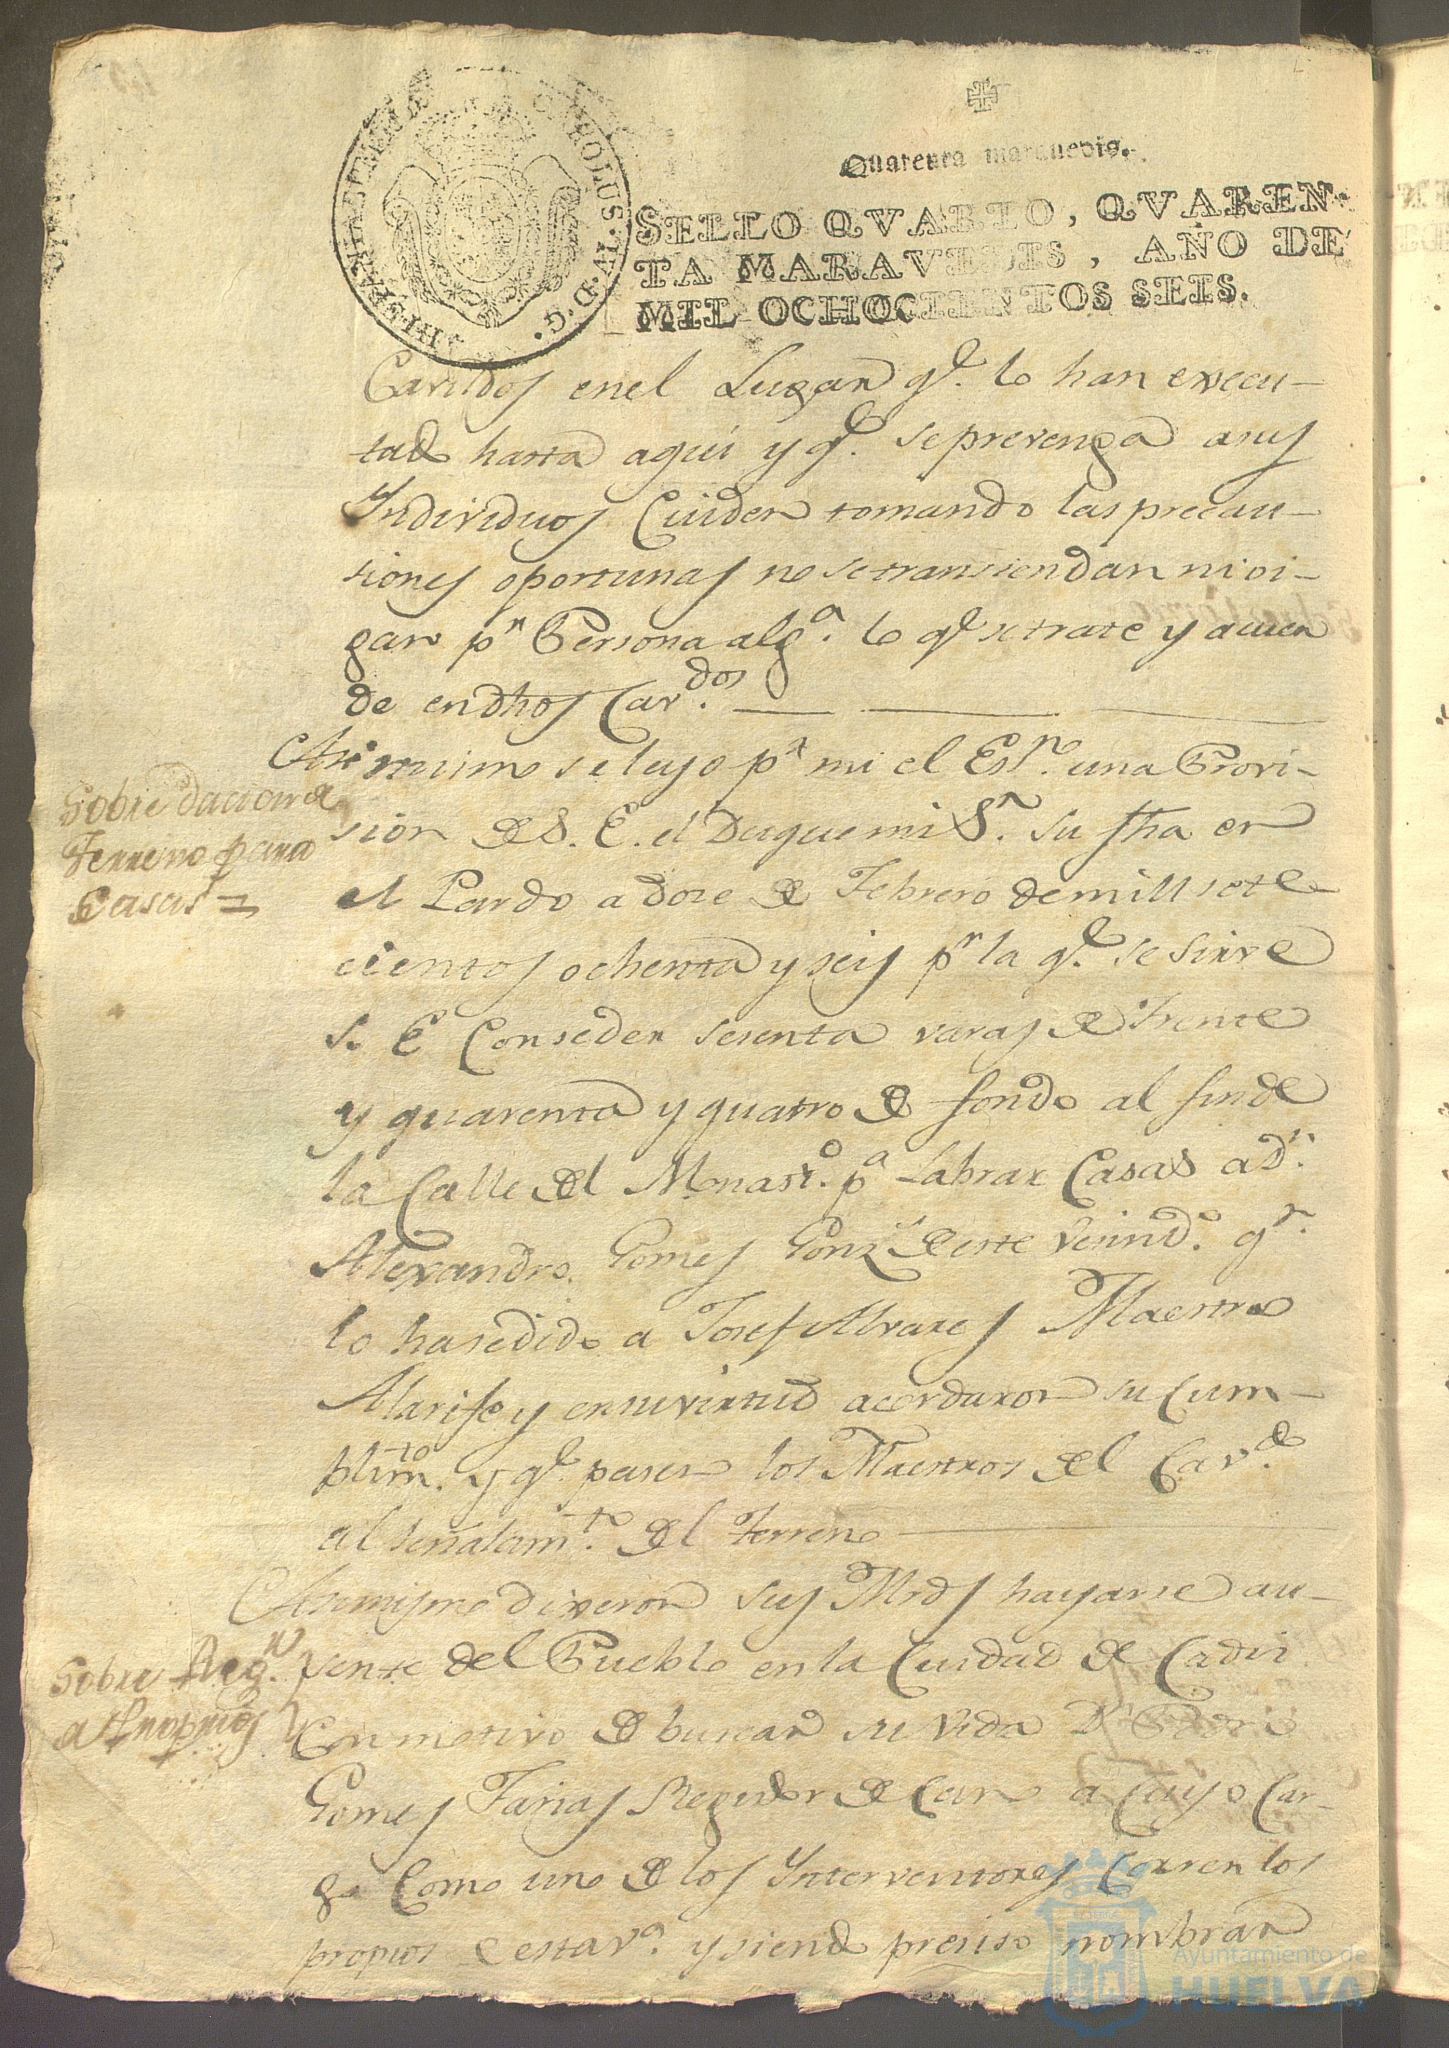 CAROLUS·IV·D·G·
HISPANIAR·REX
Quarenta maravedis.
SELLO QVARTO, QVAREN-
TA MARAVEDIS, AÑO DE
MIL OCHOCIENTOS SEIS.
Cavildos en el Lugar q.e lo han execu-
tado hasta aqui y q.e se prevenga a sus
Individuos Cuiden tomando las precau-
siones oportunas no se transciendan ni oi-
gan p.r Persona alg.a lo q.e se trate y acuer
de en dhos Cav.dos
Asi mismo se leyo p.r mi el Es.no una Provi-
sion de S. E. el Duque mi S.r su fha en
el Pardo a doze de Febrero de mill sete-
cientos ochenta y seis p.r la q.e se sirve
S. E. Conseder sesenta varas de frente
y quarenta y quatro de fondo al fin de
la Calle del Monast.o p.a Labrar Casas a D.n
Alexandro Gomes Gonz.s de este Vesind.o q.n
lo ha sedido a Josef Alvares Maestro
Alarife y en su virtud acordaron su Cum-
plim.to y q.e pasen los Maestros del Cav.do
al señalam.to del terreno
Asimismo dixeron sus Mrds hayarse au-
sente del Pueblo en la Ciudad de Cadiz
Con motivo de buscar su vida D.n Pedro
Gomes Farias Regidor de Cano a Cuyo Car-
go Como uno de los Interventores Corren los
propios de esta V.a y siendo presiso nombrar
Sobre dacion de
Terreno para
Casas
Sobre Reg.n
a Propios
Ayuntamiento de
HUELVA